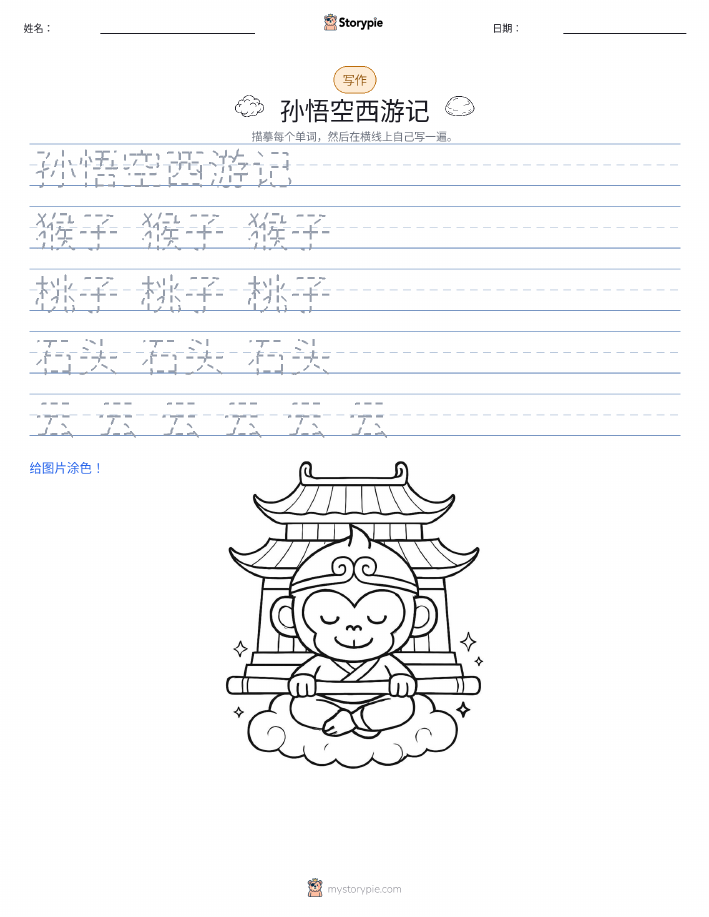 姓名：
Storypie
日期：
写作
孙悟空西游记
描摹每个单词，然后在横线上自己写一遍。
孙悟空西游记
猴子 猴子 猴子
桃子 桃子 桃子
石头 石头 石头
云 云 云 云 云 云
给图片涂色！
mystorypie.com